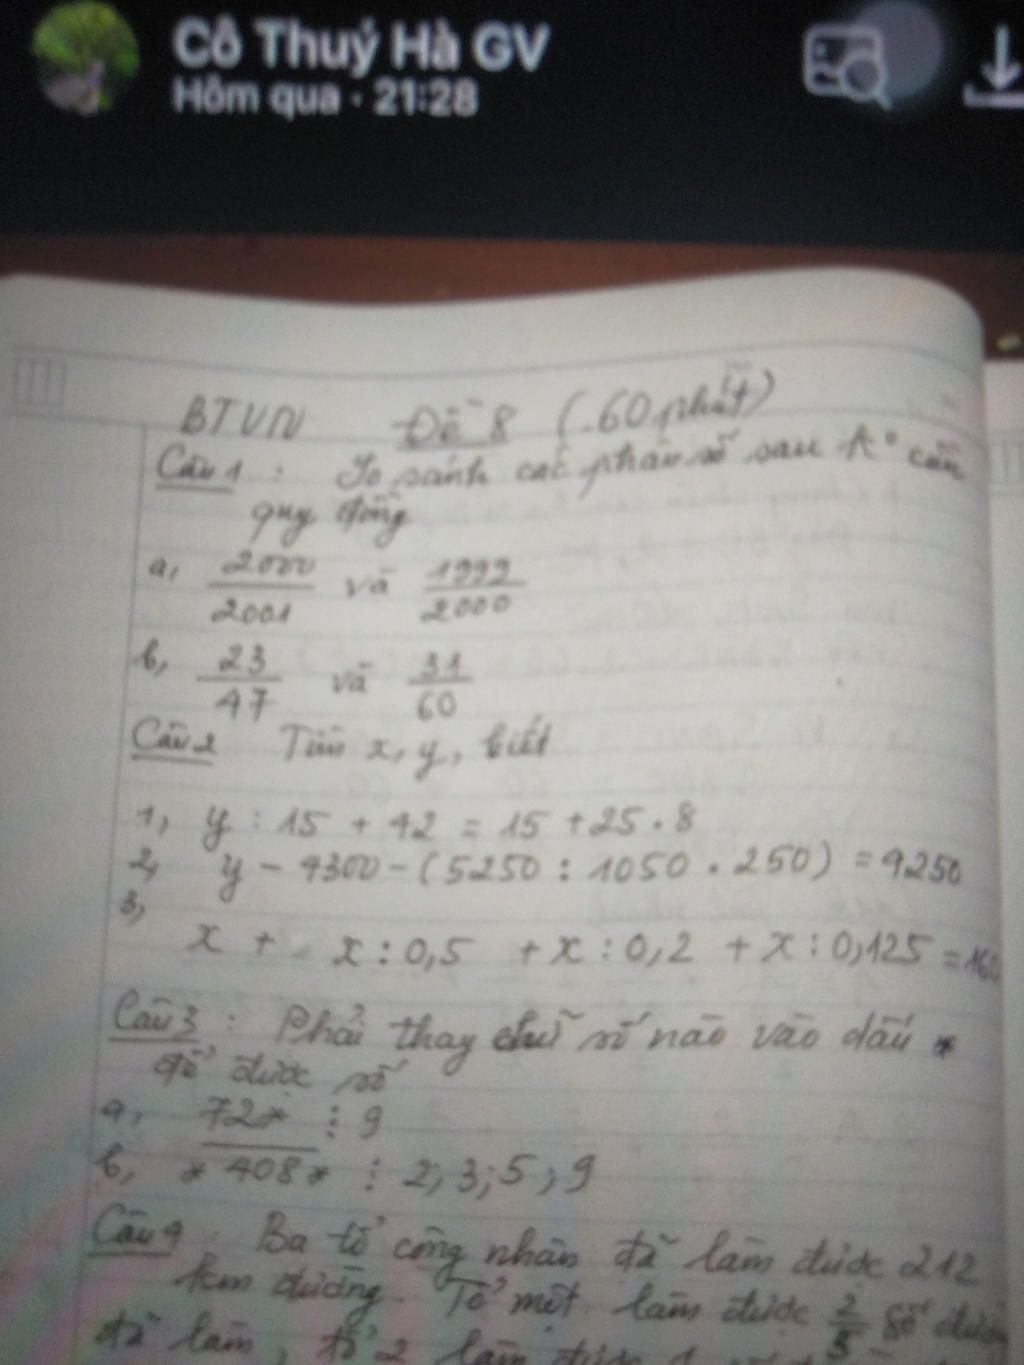 Cô Thuý Hà GV
Hôm qua · 21:28
BTVN Đề 8 (60 phút)
Câu 1 : So sánh các phân số sau k° cần
quy đồng
a, 2000/2001 và 1999/2000
b, 23/47 và 31/60
Câu 2 Tìm x, y, biết
1, y : 15 + 42 = 15 + 25 . 8
2, y - 4300 - (5250 : 1050 . 250) = 4250
3,
x + x : 0,5 + x : 0,2 + x : 0,125 = 160
Câu 3 : Phải thay chữ số nào vào dấu *
để được số
a, 72* ⋮ 9
b, *408* ⋮ 2; 3; 5; 9
Câu 4 : Ba tổ công nhân đã làm được 212
km đường. Tổ một làm được 2/5 số đường
đã làm, tổ 2 làm được